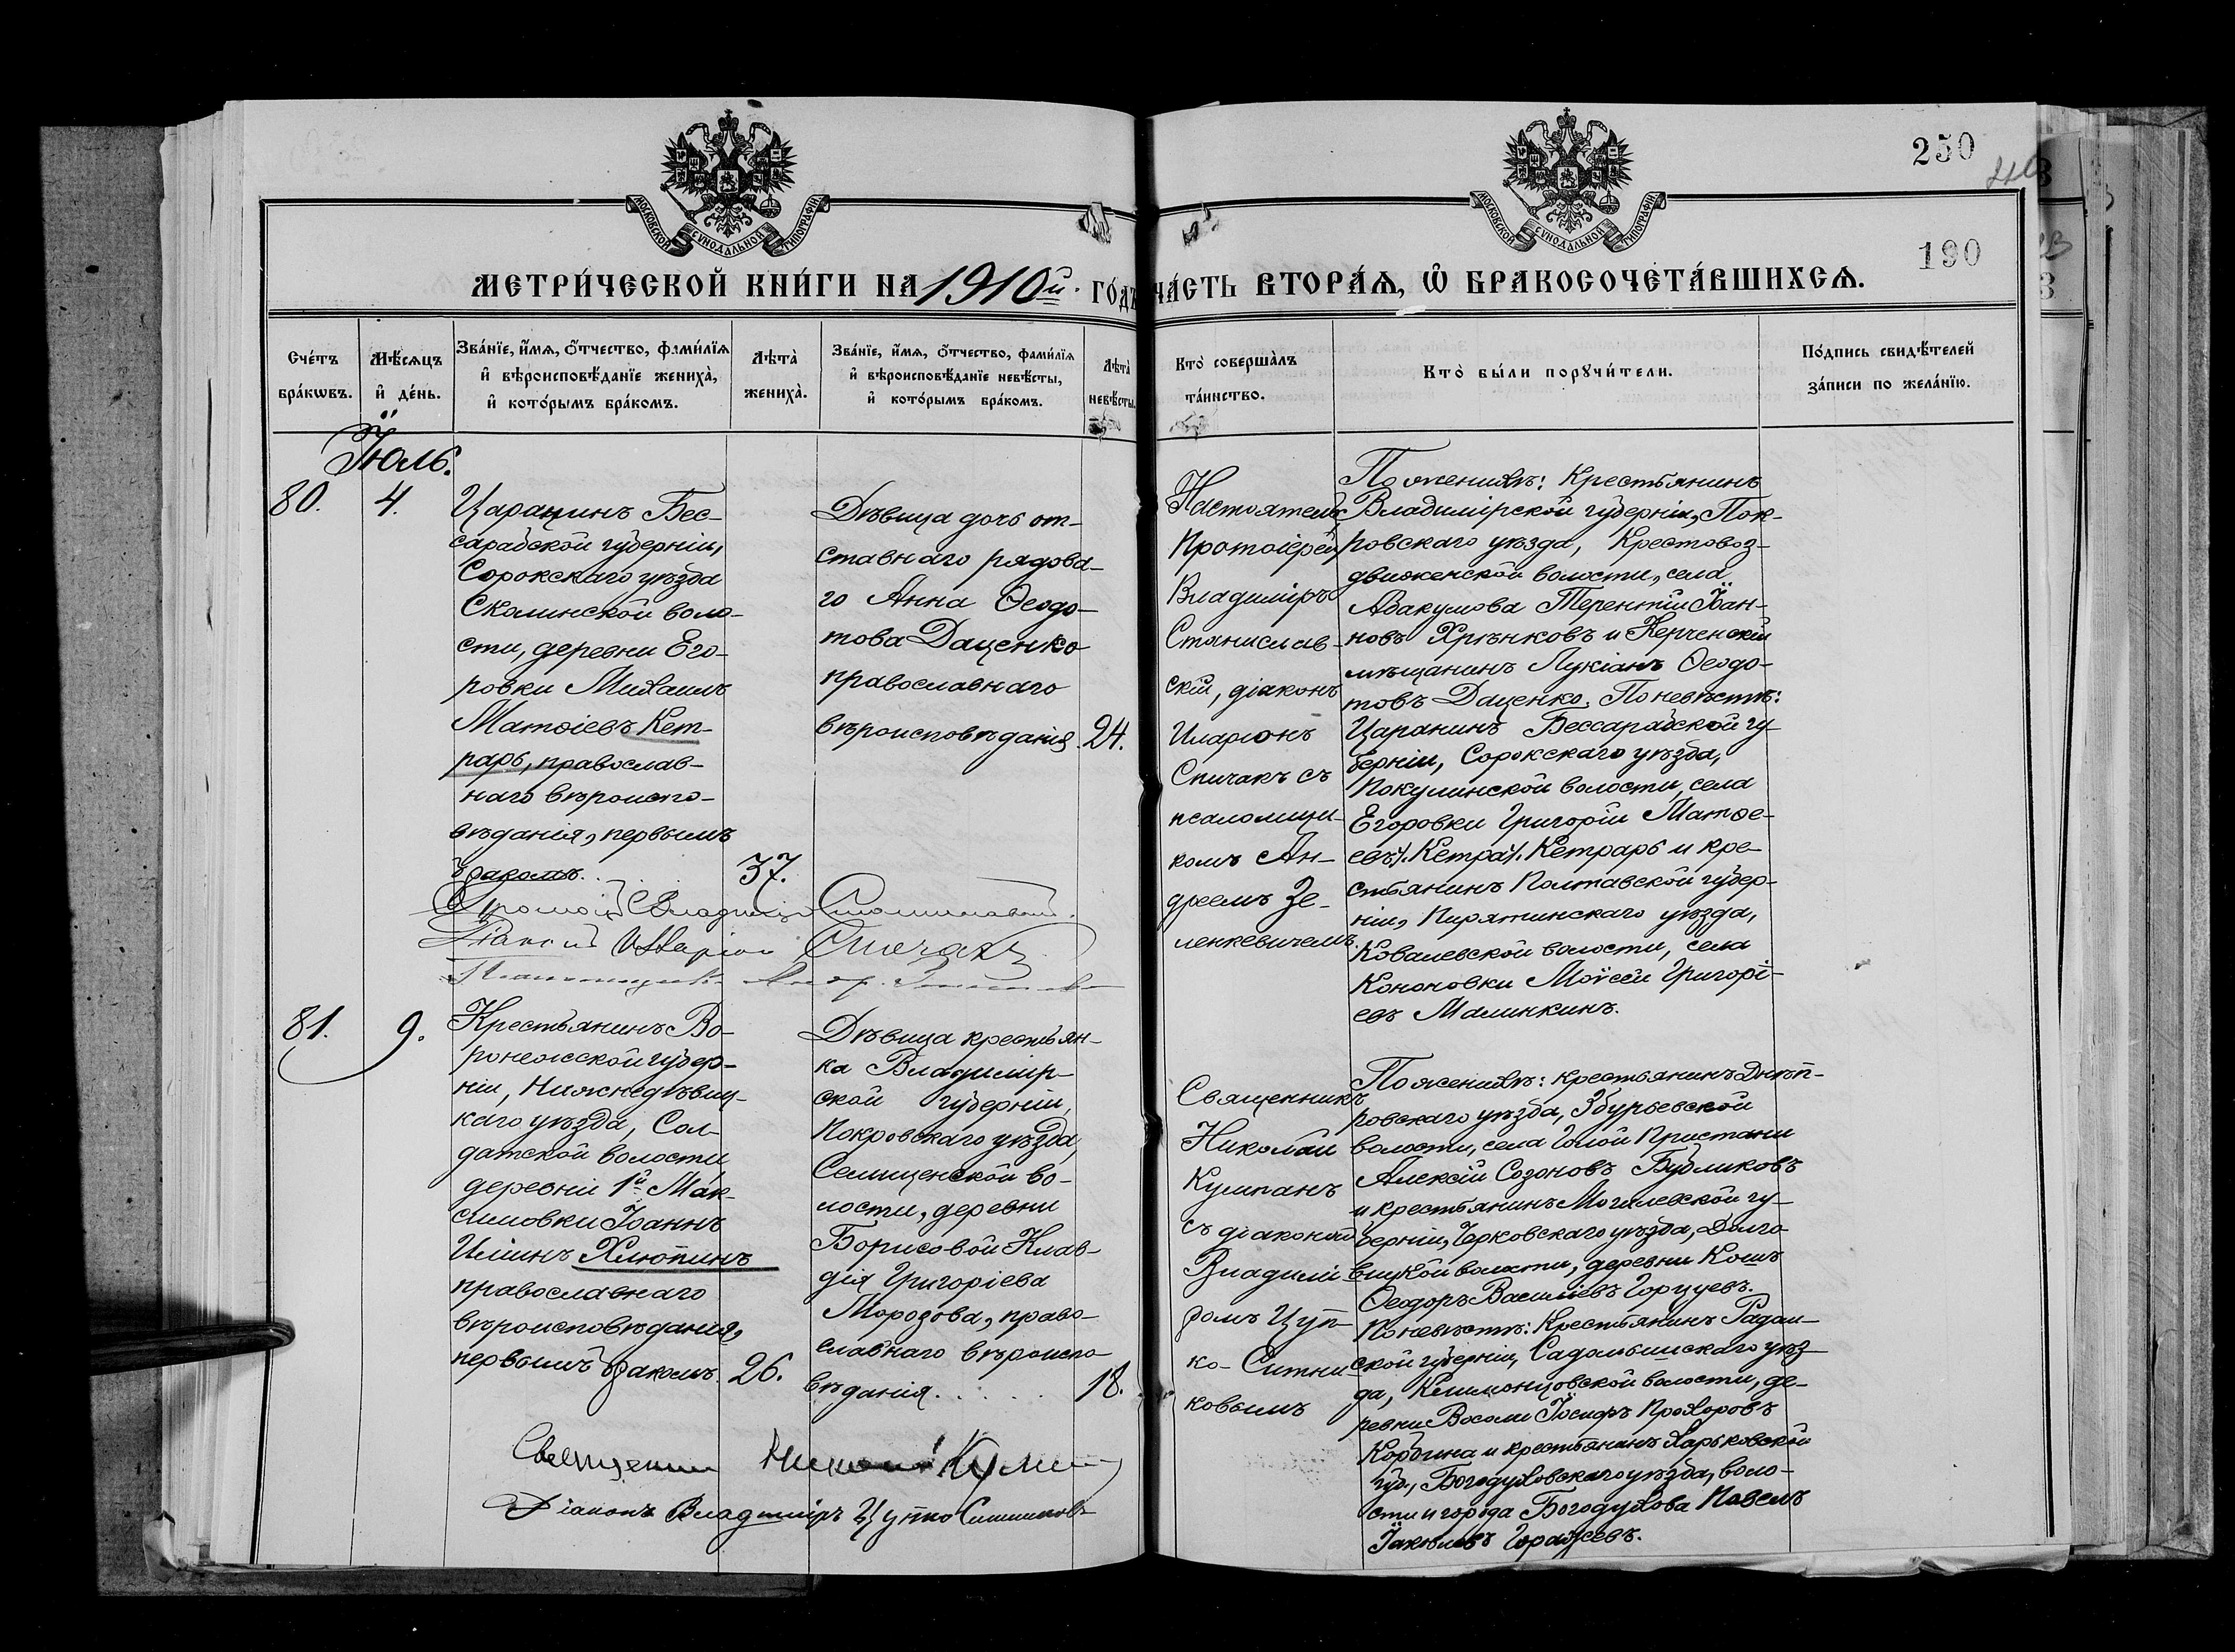 250
190
МОСКОВСКОЙ СѴНОДАЛЬНОЙ ТИПОГРАФІИ
МОСКОВСКОЙ СѴНОДАЛЬНОЙ ТИПОГРАФІИ
МЕТРИ́ЧЕСКОЙ КНИ́ГИ НА 1910й ГО́ДЪ
ЧА́СТЬ ВТОРА́Ѧ, Ѽ БРАКОСОЧЕТА́ВШИХСѦ.
Сче́тъ бра́кѡвъ.
Мѣ́сѧцъ и҆ де́нь.
Зва́нїе, и҆́мѧ, ѻ҆́тчество, фами́лїѧ и҆ вѣроисповѣ́данїе жениха̀, и҆ кото́рымъ бра́комъ.
Лѣта̀ жениха̀.
Зва́нїе, и҆́мѧ, ѻ҆́тчество, фами́лїѧ и҆ вѣроисповѣ́данїе невѣ́сты, и҆ кото́рымъ бра́комъ.
Лѣта̀ невѣ́сты.
Кто̀ соверша̀лъ та́инство.
Кто̀ бы́ли порꙋчи́тели.
По́дпись свидѣ́телей за́писи по жела́нїю.
Іюль.
80.
4.
Царанинъ Бес-
сарабской губерніи,
Сорокскаго уѣзда
Скалинской воло-
сти, деревни Его-
ровки Михаилъ
Матѳіевъ Кет-
рарь, православ-
наго вѣроиспо-
вѣданія, первымъ
бракомъ.
37.
Дѣвица дочь от-
ставнаго рядова-
го Анна Ѳеодо-
това Даценко
православнаго
вѣроисповѣданія.
24.
Настоятель
Протоіерей
Владиміръ
Станислав-
скій, діаконъ
Иларіонъ
Спичакъ съ
псаломщи-
комъ Ан-
дреемъ Зе-
ленкевичемъ.
По женихѣ: Крестьянинъ
Владимірской губерніи, Пок-
ровскаго уѣзда, Крестовоз-
движенской волости, села
Абакумова Терентій Іоан-
новъ Хрѣнковъ и Керченскій
мѣщанинъ Лукіанъ Ѳеодо-
товъ Даценко. По невѣстѣ:
Царанинъ Бессарабской гу-
берніи, Сорокскаго уѣзда,
Покулинской волости, села
Егоровки Григорій Матѳе-
евъ /. Кетра/. Кетрарь и кре-
стьянинъ Полтавской губер-
ніи, Пирятинскаго уѣзда,
Ковалевской волости, села
Кононовки Моѵсей Григорі-
евъ Малинкинъ.
Протоіерей Владиміръ Станиславскій.
Діаконъ Иларіон Спичакъ
81.
9.
Крестьянинъ Во-
ронежской губер-
ніи, Нижнедѣвиц-
каго уѣзда, Сол-
датской волости
деревни 1й Мак-
симовки Іоаннъ
Иліинъ Хлюпинъ
православнаго
вѣроисповѣданія,
первымъ бракомъ.
26.
Дѣвица крестьян-
ка Владимір-
ской губерніи,
Покровскаго уѣзда,
Селищенской во-
лости, деревни
Борисовой Клав-
дія Григоріева
Морозова, право-
славнаго вѣроиспо-
вѣданія.
18.
Священникъ
Николай
Кумпанъ
съ діакономъ
Владимі-
ромъ Цуп-
ко-Ситни-
ковымъ
По женихѣ: крестьянинъ Днѣп-
ровскаго уѣзда, Збурьевской
волости, села Голой Пристани
Алексій Созоновъ Бубликовъ
и крестьянинъ Могилевской гу-
берніи, Черковскаго уѣзда, Долго-
вицкой волости, деревни Кошъ
Ѳеодоръ Васильевъ
По невѣстѣ: Крестьянинъ Радом-
ской губерніи, уѣз-
да, Климонтовской волости, де-
ревни Іосифъ Прохоровъ
и крестьянинъ Харьковской
губ., Богодуховскаго уѣзда, воло-
сти и города Богодухова Павелъ
Іаковлевъ
Священникъ Николай Кумпанъ
Діаконъ Владиміръ Цупко Ситниковъ